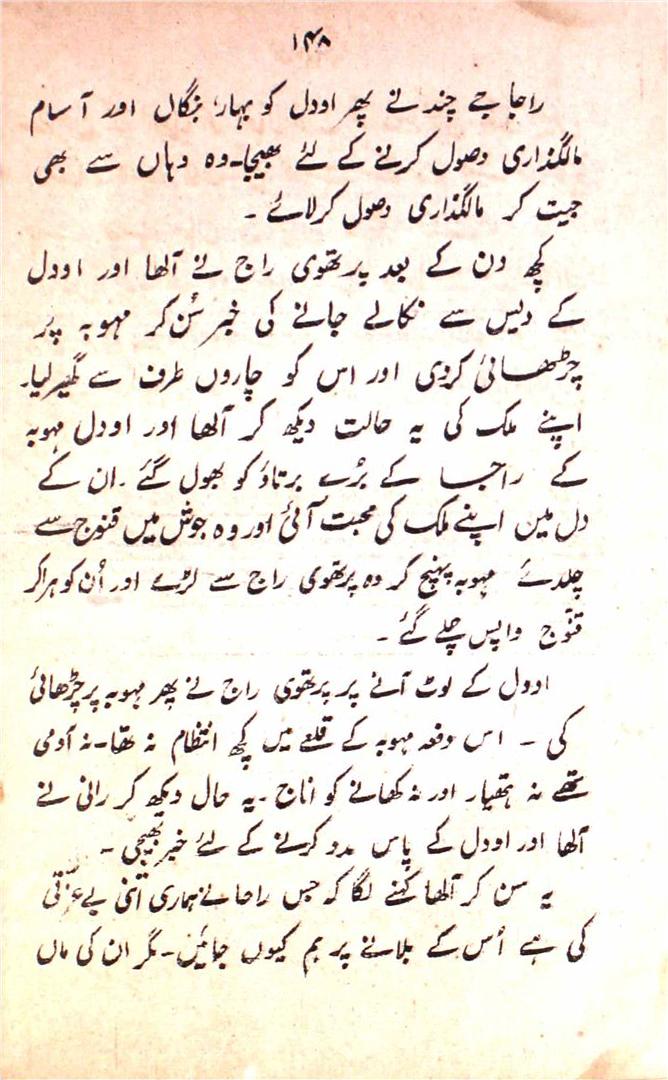 ۱۴۸
راجا جے چند نے پھر اودل کو بہار، بنگال اور آسام
مالگذاری وصول کرنے کے لئے بھیجا۔ وہ وہاں سے بھی
جیت کر مالگذاری وصول کر لائے ۔
کچھ دن کے بعد پرتھوی راج نے آلھا اور اودل
کے دیس سے نکالے جانے کی خبر سُن کر مہوبہ پر
چڑھائی کردی اور اس کو چاروں طرف سے گھیر لیا۔
اپنے ملک کی یہ حالت دیکھ کر آلھا اور اودل مہوبہ
کے راجا کے بُرے برتاؤ کو بھول گئے ۔ ان کے
دل میں اپنے ملک کی محبت آئی اور وہ جوش میں قنوج سے
چلدئے مہوبہ پہنچ کر وہ پرتھوی راج سے لڑے اور اُن کو ہرا کر
قنّوج واپس چلے گئے ۔
اودل کے لوٹ آنے پر پرتھوی راج نے پھر مہوبہ پر چڑھائی
کی ۔ اس دفعہ مہوبہ کے قلعے میں کچھ انتظام نہ تھا۔ نہ آدمی
تھے نہ ہتھیار اور نہ کھانے کو اناج ۔ یہ حال دیکھ کر رانی نے
آلھا اور اودل کے پاس مدد کرنے کے لئے خبر بھیجی ۔
یہ سن کر آلھا کہنے لگا کہ جس راجا نے ہماری اتنی بے عزّتی
کی ہے اُس کے بلانے پر ہم کیوں جائیں ۔ مگر ان کی ماں